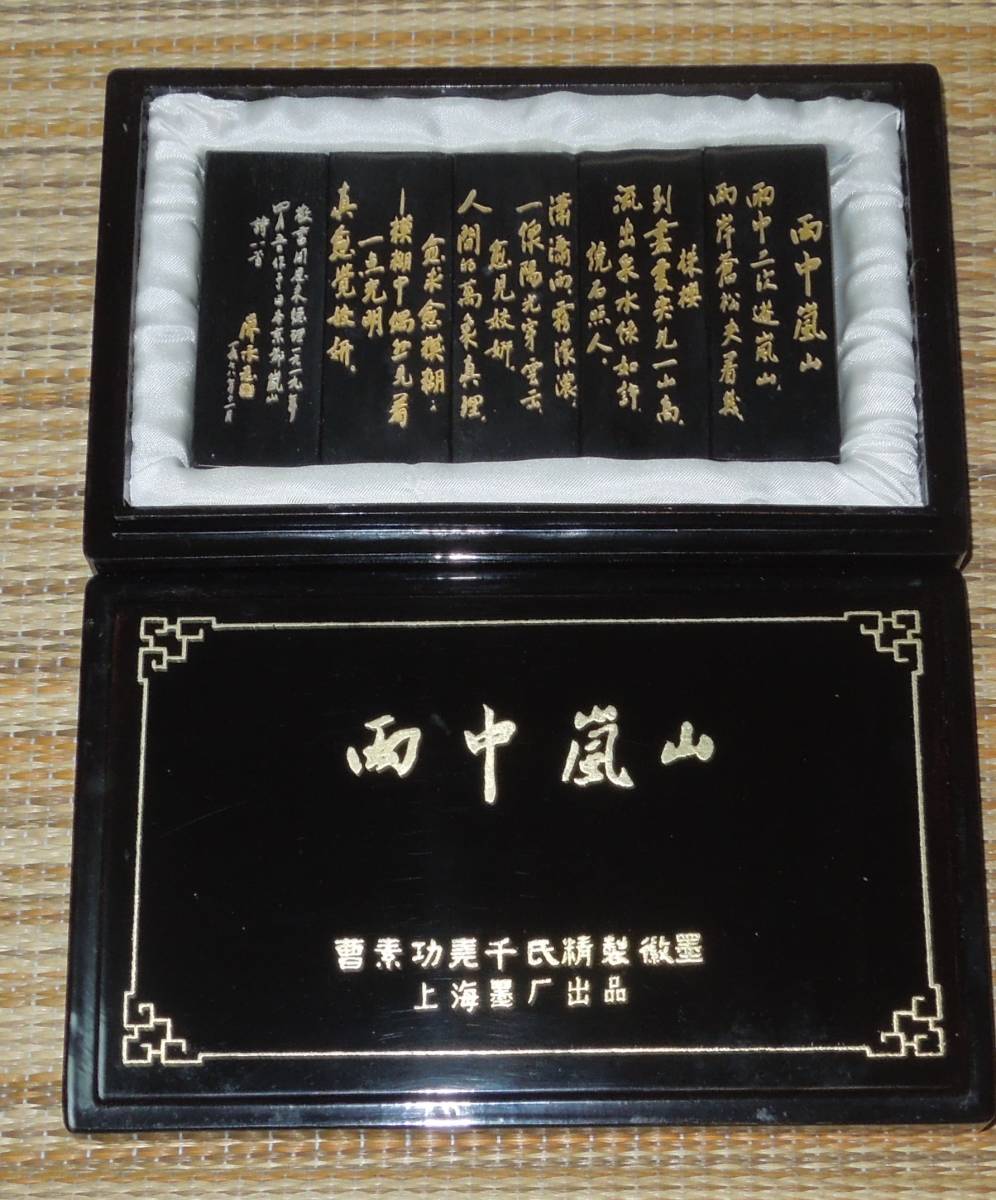 雨中嵐山
雨中二次遊嵐山,
兩岸蒼松夾着幾
株櫻
到盡處突見一山高,
流出泉水綠如許,
繞石照人.
瀟瀟雨霧濛濃,
一線陽光穿雲出
愈見姣妍.
人間的萬象真理,
愈求愈模糊:
—模糊中偶然見着
一点光明
真愈覺姣妍.
敬書周恩来總理一九一九年
四月五作于日本京都嵐山
詩一首
廖承志
雨中嵐山
曹素功堯千氏精製徽墨
上海墨厂出品